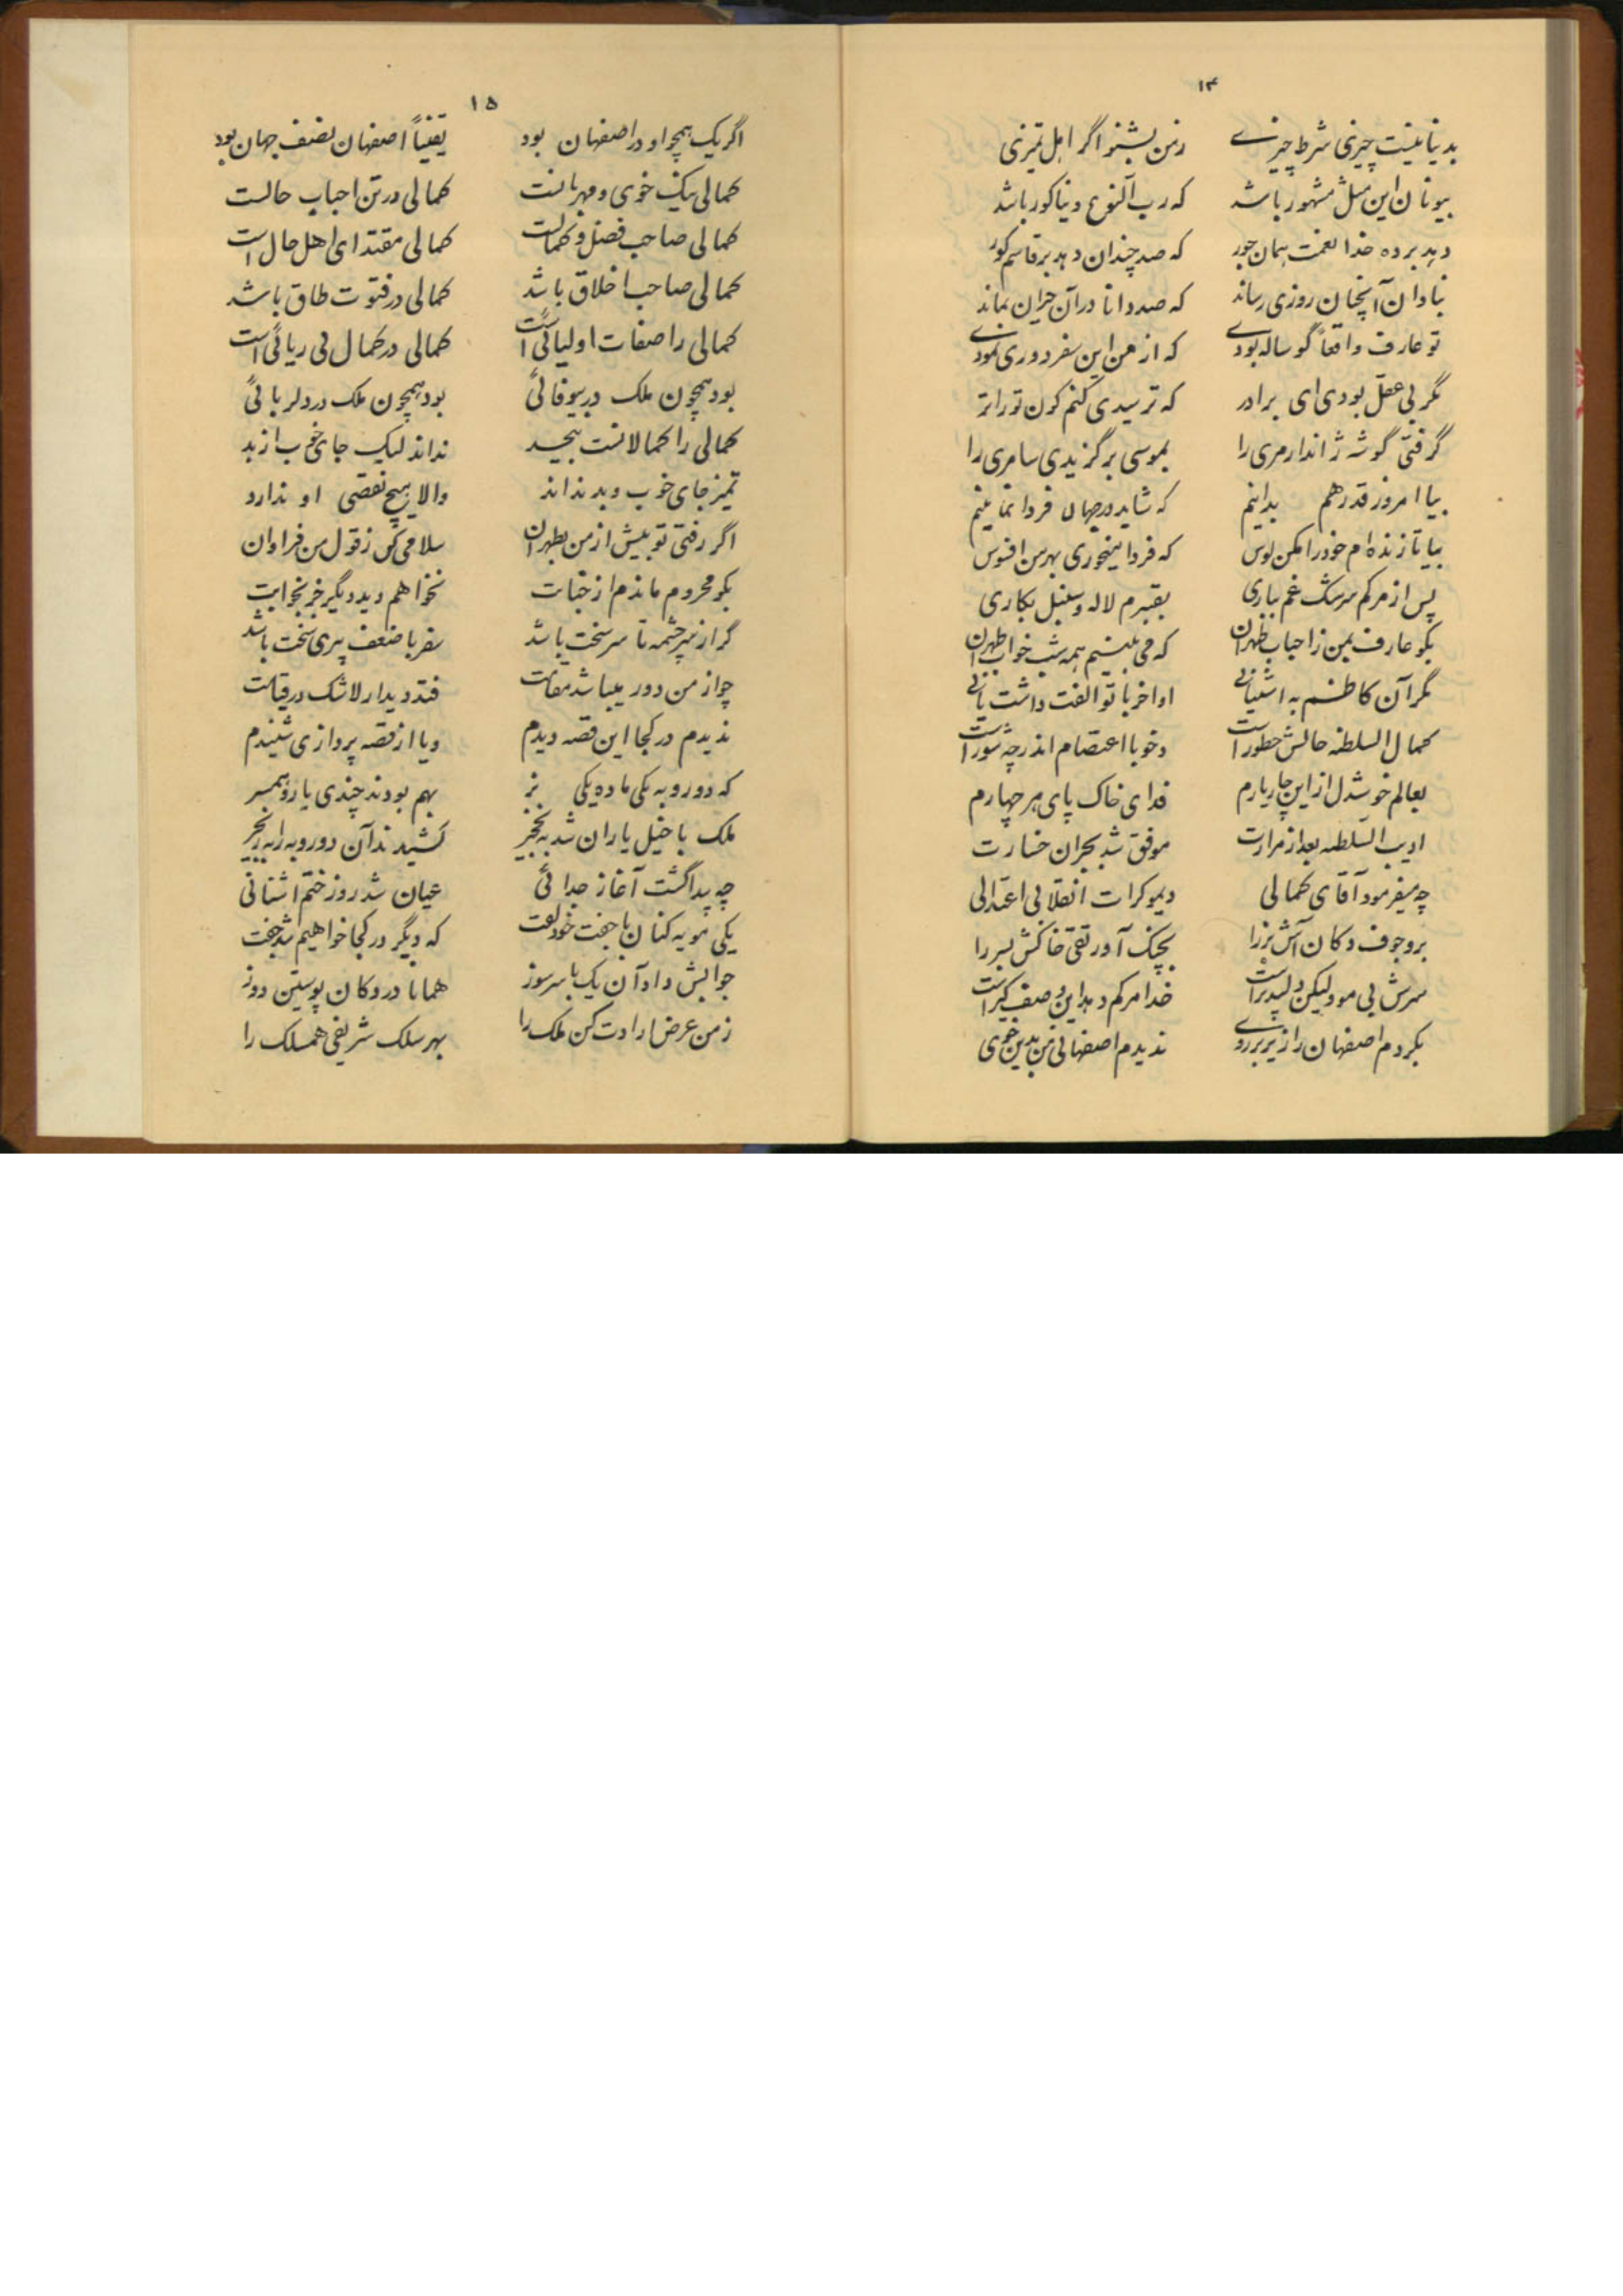 ۱۴
بدنیا نیست چیزی شرط چیزی زمن بشنو اگر اهل تمیزی
بیونان این مثل مشهور باشد که رب النوع دنیا کور باشد
دهد برده خدا نعمت همان جور که صد چندان دهد بر قاسم کور
بنادان آنچنان روزی رساند که صد دانا در آن حیران بماند
تو عارف واقعاً گوساله بودی که از من این سفر دوری نمودی
مگر بی عقل بودی ای برادر که ترسیدی کنم کون تو را تر
گرفتی گوشه ژاندارمری را بموسی برگزیدی سامری را
بیا امروز قدر هم بدانیم که شاید در جهان فردا نمانیم
بیا تا زنده ام خود را مکن لوس که فردا میخوری بهر من افسوس
پس از مرگم سرشک غم بباری بقبرم لاله و سنبل بکاری
بگو عارف بمن ز احباب طهران که می بینم همه شب خواب طهران
مگر آن کاظم به آشتیانی اواخر با تو الفت داشت یانی
کمال السلطنه حالش چطور است دخو با اعتصام اندر چه شور است
بعالم خوشدل از این چار یارم فدای خاک پای هر چهارم
ادیب السلطنه بعد از مرارت موفق شد بجبران خسارت
چه میفرمود آقای کمالی دیموکرات انقلابی اعتدالی
برد جوف دکان آش بز را بچنگ آورد تقی خانکش بسر را
سرش بی مو ولیکن دلپذیر است خدا مرگم دهد این وصف کیر است
بکردم اصفهان را زیر بر روی ندیدم اصفهانی من بدین خوی
۱۵
اگر یک همچو او در اصفهان بود یقیناً اصفهان نصف جهان بود
کمالی نیک خوی و مهربانست کمالی در تن احباب جانست
کمالی صاحب فضل و کمالست کمالی مقتدای اهل حال است
کمالی صاحب اخلاق باشد کمالی در فتوت طاق باشد
کمالی را صفات اولیائی است کمالی در کمال بی ریائی است
بود همچون ملک در بیوفائی بود همچون ملک در دلربائی
کمالی را کمالاتست بیحد نداند لیک جای خوب از بد
تمیز جای خوب و بد نداند والا هیچ نقصی او ندارد
اگر رفتی تو پیش از من بطهران سلامی کن ز قول من فراوان
بگو محروم ماندم از جنابت نخواهم دید دیگر جز بخوابت
گر از سرچشمه تا سرتخت باشد سفر با ضعف پیری سخت باشد
چو از من دور میباشد مقامت فتد دیدار لاشک در قیامت
ندیدم در کجا این قصه دیدم ویا از قصه پردازی شنیدم
که دو روبه یکی ماده یکی نر بهم بودند چندی یار و همسر
ملک با خیل یاران شد به نخجیر کشیدند آن دو روبه را به زنجیر
چه پیدا گشت آغاز جدائی عیان شد روز ختم آشنائی
یکی مویه کنان با جفت خود گفت که دیگر در کجا خواهیم شد جفت
جوابش داد آن یک با سر سوز همانا در دکان پوستین دوز
ز من عرض ارادت کن ملک را بهر سلک شریفی همسلک را